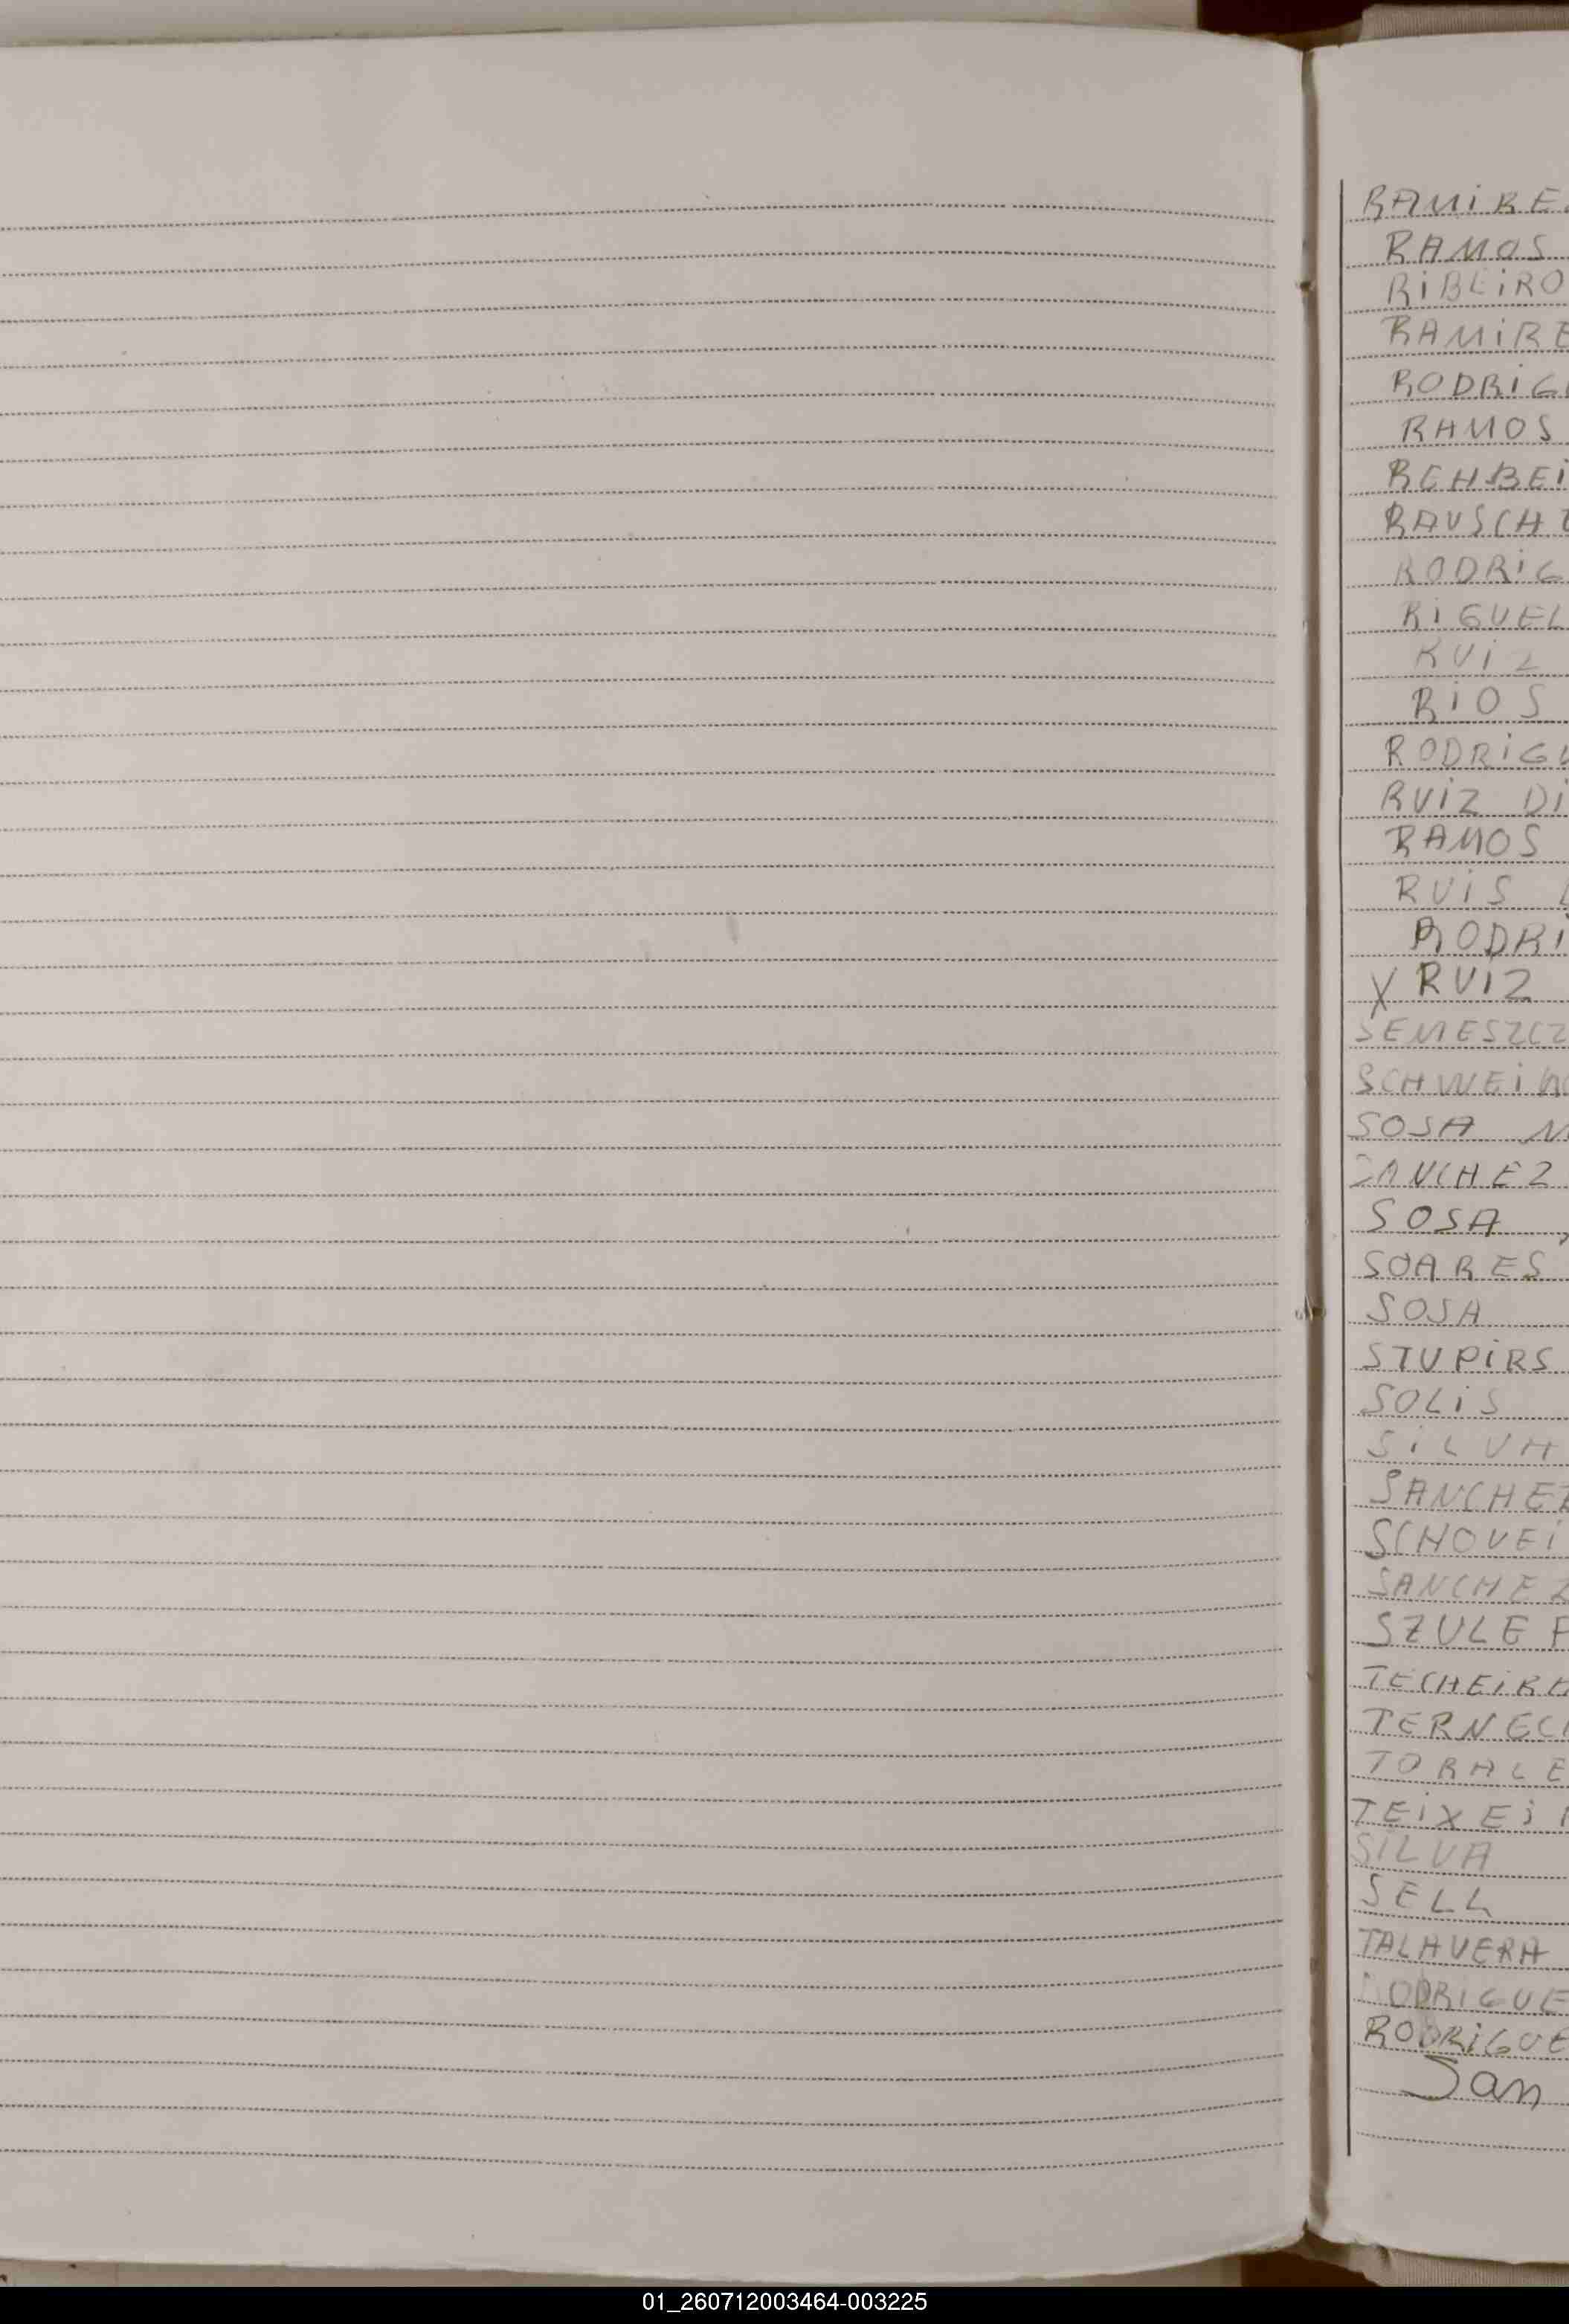 RAMIRE
RAMOS
RIBEIRO
RAMIRE
RODRIG
RAMOS
REHBEI
RAUSCH
RODRIG
RIGUEL
RUIZ
RIOS
RODRIGU
RUIZ DI
RAMOS
RUIS
RODRI
X RUIZ
SEMESZCZ
SCHWEI
SOSA
SANCHEZ
SOSA
SOARES
SOSA
STUPIRS
SOLIS
SILVA
SANCHEZ
SCHOVEI
SANCHEZ
SZULE
TECHEIRA
TERNEC
TORALE
TEIXEI
SILVA
SELL
TALAVERA
RODRIGUE
RODRIGUE
San
01_260712003464-003225